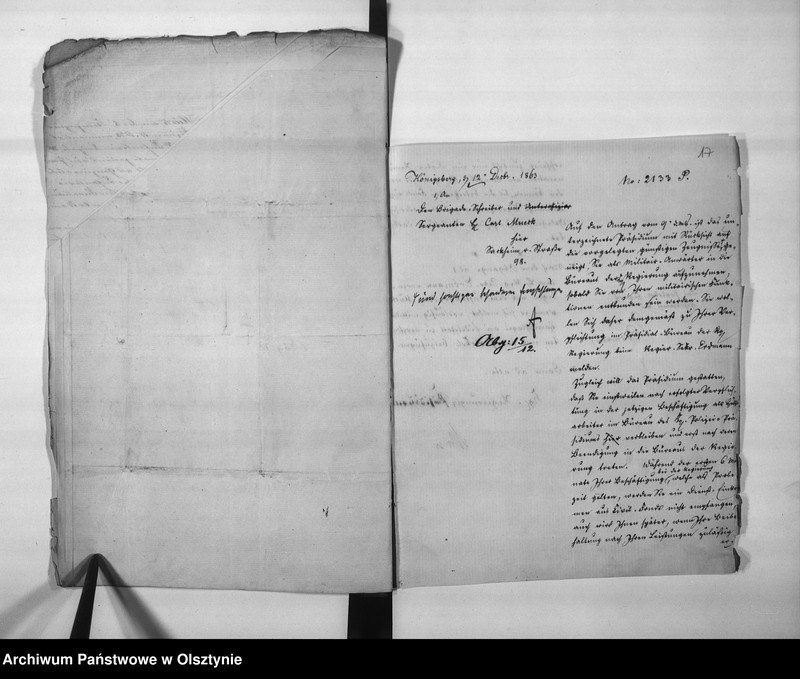 17
Königsberg, d. 12t Decb. 1863
No: 2133 P.
1, An
den Brigade-Schreiber und Unteroffizier
Sergeanten H. Carl Murok
hier
Sackheim, r. Straße
98.
Auf den Antrag vom 9t ist das un-
terzeichnete Präsidium mit Rücksicht auf
die vorgelegten günstigen Zeugnisse ge-
neigt, Sie als Militair-Anwärter in die
Büreaus der Regierung aufzunehmen,
sobald Sie von Ihren militairischen Funk-
tionen entbunden sein werden. Sie wol-
len Sich daher demgemäß zu Ihrer Ver-
pflichtung im Präsidial-Büreau der Kg.
Regierung beim Regier. Sekr. Erdmann
melden.
Zugleich will das Präsidium gestatten,
daß Sie einstweilen nach erfolgter Verpflich-
tung in der jetzigen Beschäftigung als Hülfs-
arbeiter im Büreau des Kg. Polizei-Prä-
sidiums hier verbleiben und erst nach deren
Beendigung in die Büreaus der Regie-
rung treten. Während der ersten 6 Mo-
bei der Regierung
nate Ihrer Beschäftigung, welche als Probe-
zeit gelten, werden Sie ein Dienst-Einkom-
men aus Civil-Fonds nicht empfangen,
auch wird Ihnen später, wenn Ihre Beibe-
haltung nach Ihren Leistungen zulässig
Abg: 15/12.
Archiwum Państwowe w Olsztynie